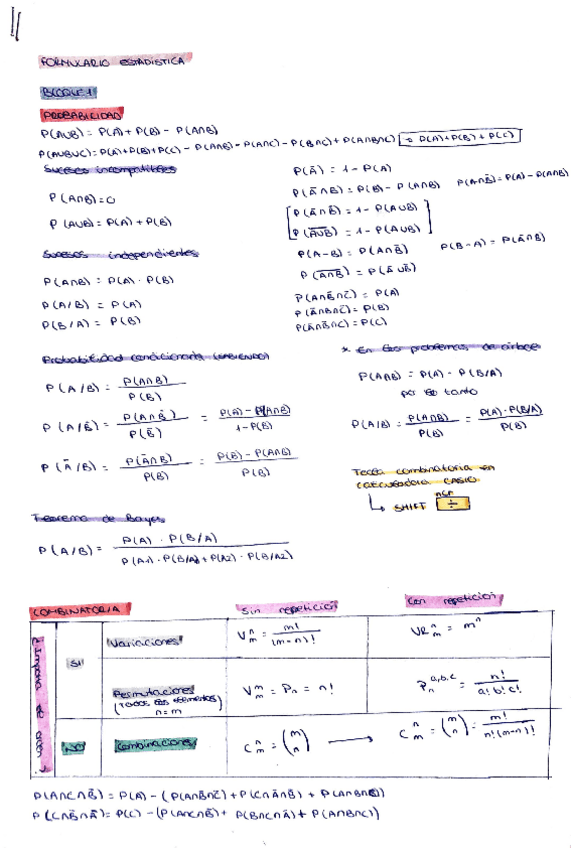 FORMULARIO ESTADISTICA
BLOQUE 1
PROBABILIDAD
P(A∪B) = P(A) + P(B) - P(A∩B)
P(A∪B∪C) = P(A)+P(B)+P(C) - P(A∩B) - P(A∩C) - P(B∩C) + P(A∩B∩C) → P(A)+P(B)+P(C)
Sucesos incompatibles
P(A∩B)=0
P(A∪B) = P(A) + P(B)
Sucesos independientes
P(A∩B) = P(A) · P(B)
P(A/B) = P(A)
P(B/A) = P(B)
P(Ā) = 1 - P(A)
P(Ā∩B) = P(B) - P(A∩B) P(A∩B̄) = P(A) - P(A∩B)
P(Ā∩B̄) = 1 - P(A∪B)
P(A̅∪̅B̅) = 1 - P(A∪B)
P(A-B) = P(A∩B̄) P(B-A) = P(Ā∩B)
P(A̅∩̅B̅) = P(Ā∪B̄)
P(A∩B̄∩C̄) = P(A)
P(Ā∩B∩C̄) = P(B)
P(Ā∩B̄∩C) = P(C)
Probabilidad condicionada (SABIENDO)
P(A/B) = P(A∩B) / P(B)
P(A/B̄) = P(A∩B̄) / P(B̄) = P(A) - P(A∩B) / 1 - P(B)
P(Ā/B) = P(Ā∩B) / P(B) = P(B) - P(A∩B) / P(B)
* En los problemas de árbol
P(A∩B) = P(A) · P(B/A)
por lo tanto
P(A/B) = P(A∩B) / P(B) = P(A)·P(B/A) / P(B)
Tecla combinatoria en
calculadora CASIO
↳ SHIFT nCr ÷
Teorema de Bayes
P(A/B) = P(A) · P(B/A) / P(A1) · P(B/A1) + P(A2) · P(B/A2)
COMBINATORIA Sin repetición Con repetición
SI
Variaciones V m n = m! / (m-n)! VR m n = m^n
Permutaciones V m m = Pn = n! Pn a,b,c = n! / a! b! c!
(TODOS los elementos)
n = m
NO Combinaciones C m n = (m n) → C m n = (m n) = m! / n!(m-n)!
P(A∩C∩B̄) = P(A) - (P(A∩B̄∩C̄) + P(C∩Ā∩B̄) + P(A∩B∩C))
P(C∩B̄∩Ā) = P(C) - (P(A∩C∩B̄) + P(B∩C∩Ā) + P(A∩B∩C))